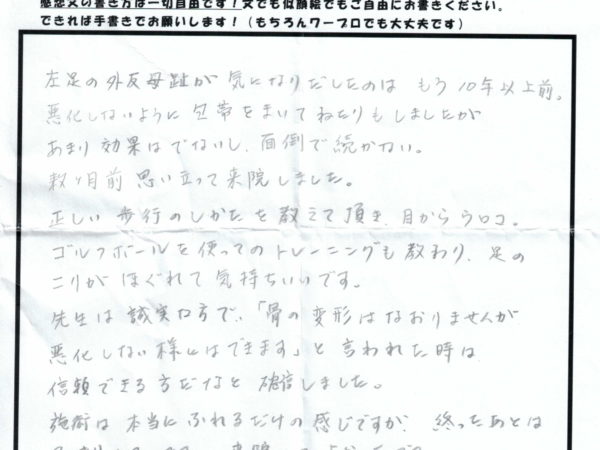 感想文の書き方は一切自由です！文でも似顔絵でもご自由にお書きください。
できれば手書きでお願いします！（もちろんワープロでも大丈夫です）
左足の外反母趾が気になりだしたのはもう10年以上前。
悪化しないように包帯をまいてねたりもしましたが
あまり効果はでないし、面倒で続かない。
数ヶ月前思い立って来院しました。
正しい歩行のしかたを教えて頂き、目からウロコ。
ゴルフボールを使ってのトレーニングも教わり、足の
こりがほぐれて気持ちいいです。
先生は誠実な方で、「骨の変形はなおりませんが
悪化しない様にはできます」と言われた時は
信頼できる方だなと確信しました。
施術は本当にふれるだけの感じですが、終ったあとは